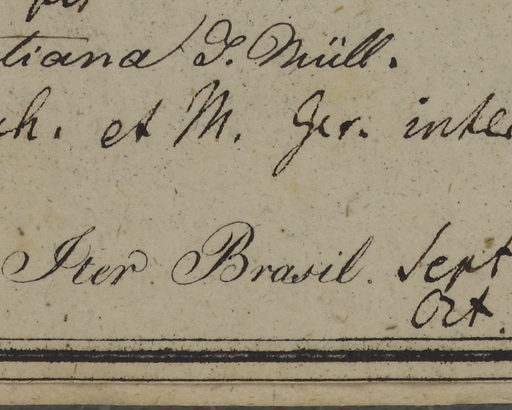 tiana J. Müll.
ch. et M. Ger. inte
Iter Brasil. Sept
Oct.